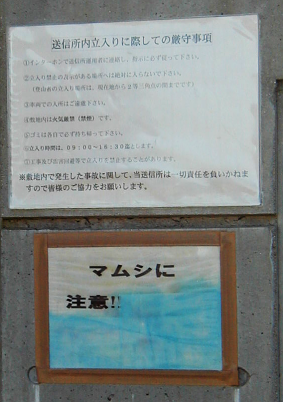 送信所内立入りに際しての厳守事項
①インターホンで送信所運用者に連絡し、指示に必ず従って下さい。
②立入り禁止の表示がある場所へは絶対に入らないで下さい。
(登山者の立入り場所は、現在地から2等三角点の間までです)
③車両での入所はご遠慮下さい。
④敷地内は火気厳禁(禁煙)です。
⑤ゴミは各自で必ず持ち帰って下さい。
⑥立入り時間は、09:00~16:30迄とします。
⑦工事及び出荷回避等で立入りを禁止することがあります。
※敷地内で発生した事故に関して、当送信所は一切責任を負いかねま
すので皆様のご協力をお願いします。
マムシに
注意!!